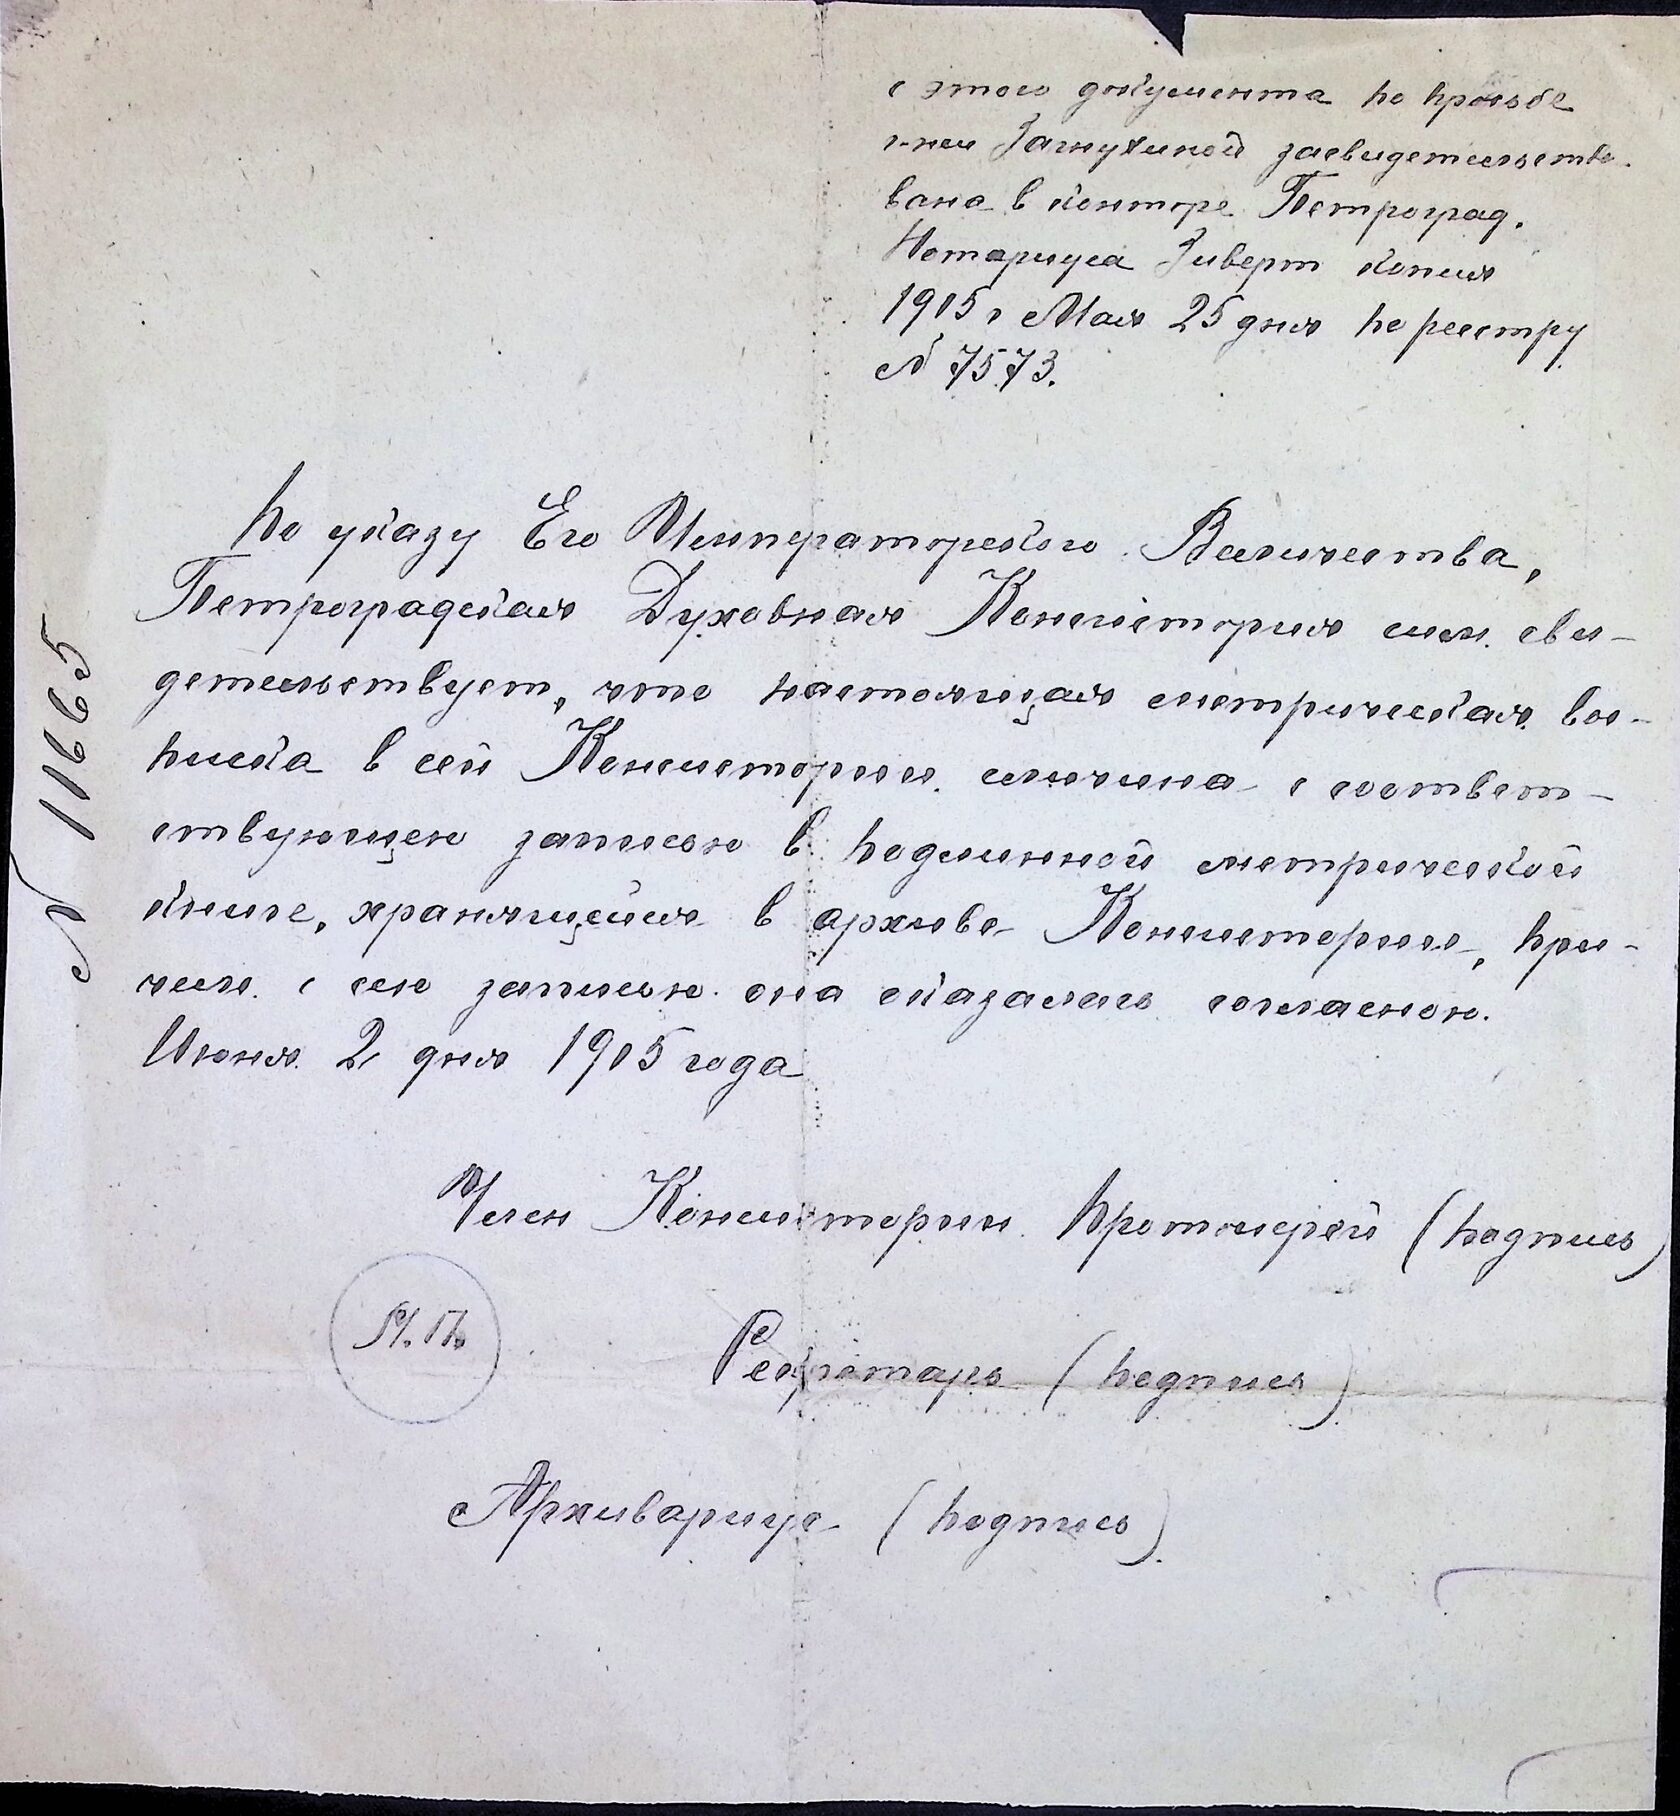 с этого документа по просьбе
г-жи засвидетельство-
вана в конторе Петроград.
Нотариуса Зиверт копия
1915 г Мая 25 дня по реестру
N 7573.
По указу Его Императорского Величества,
Петроградская Духовная Консистория сим сви-
детельствует, что настоящая метрическая вы-
писка в сей Консистории сличена с соответ-
ствующею записью в подлинной метрической
книге, хранящейся в архиве Консистории, при-
чем с сею записью она оказалась согласною.
Июня 2 дня 1915 года
N 11665
Член Консистории Протоиерей (подпись)
М.П.
Секретарь (подпись)
Архивариус (подпись).